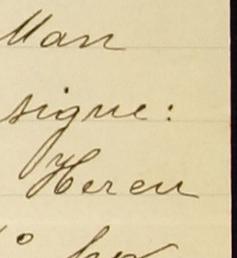 Man
signe:
Heren